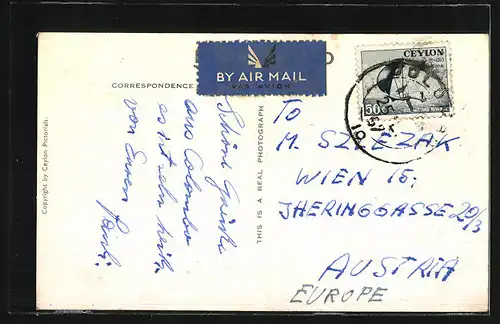 BY AIR MAIL
PAR AVION
CEYLON
50
CORRESPONDENCE
Copyright by Ceylon Pictorials.
THIS IS A REAL PHOTOGRAPH
Schöne Grüße
aus Colombo
es ist sehr heiß
von Euren
TO
M. SZLEZAK
WIEN 15,
JHERINGGASSE 20/3
AUSTRIA
EUROPE